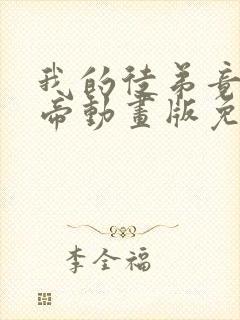 我的徒弟竟
帝動畫版免
李全福